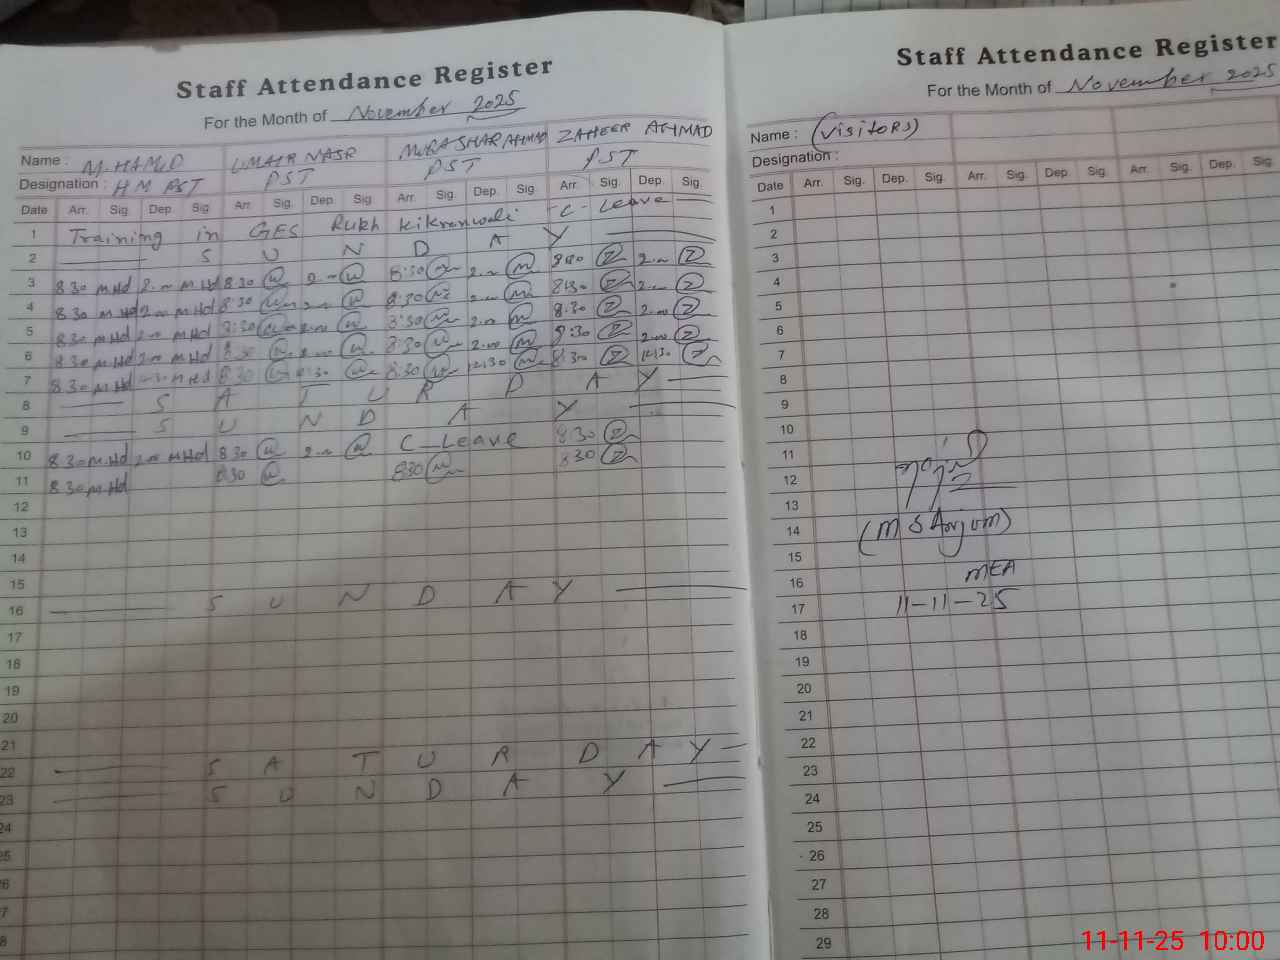 Staff Attendance Register
For the Month of November 2025
Name : M.HAMID UMAIR NASR MUBASHAR AHMAD ZAHEER AHMAD
Designation : HM PST PST PST PST
Date Arr. Sig. Dep. Sig. Arr. Sig. Dep. Sig. Arr. Sig. Dep. Sig. Arr. Sig. Dep. Sig.
1 Training in GES Rukh Kikranwali C-Leave
2 S U N D A Y
3 8.30 M.Hd 2.00 M.Hd 8:30 2.00 8:30 2.00 2.00
4 8.30 M.Hd 2.00 M.Hd 8:30 2.00 8:30 2.00 8:30 2.00
5 8.30 M.Hd 2.00 M.Hd 8:30 2.00 8:30 2.00 8.30 2.00
6 8.30 M.Hd 2.00 M.Hd 8:30 2.00 8:30 2.00 8:30 2.00
7 8.30 M.Hd M.Hd 8:30 8:30 12:30 8:30 12:30
8 S A T U R D A Y
9 S U N D A Y
10 8.30 M.Hd 2.00 M.Hd 8.30 2.00 C-Leave 8:30
11 8.30 M.Hd 8:30 8:30 8:30
12
13
14
15
16 S U N D A Y
17
18
19
20
21
22 S A T U R D A Y
23 S U N D A Y
24
25
Staff Attendance Register
For the Month of November 2025
Name : (VISITORS)
Designation :
Date Arr. Sig. Dep. Sig. Arr. Sig. Dep. Sig. Arr. Sig. Dep. Sig.
1
2
3
4
5
6
7
8
9
10
11
12
13
14 (M S Anjum)
15
16 MEA
17 11-11-25
18
19
20
21
22
23
24
25
26
27
28
29
11-11-25 10:00